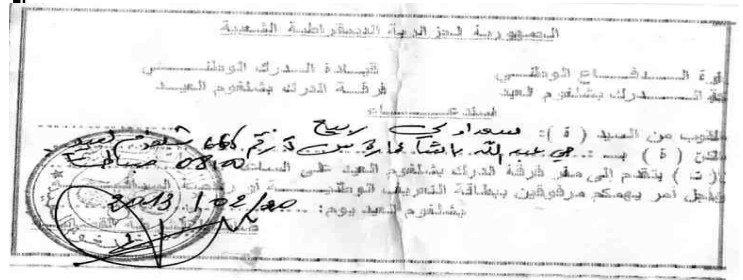 الجمهورية الجزائرية الديمقراطية الشعبية
وزارة الـدفـــاع الوطنـي قيـادة الـدرك الوطنـــي
الـــدرك بشلغوم العيد فرقـة الدرك بشلغوم العيـد
استدعـــــاء
مطلوب من السيد ( ة ): سعداوي ربيع
الساكن ( ة ) بـ : حي عبد الله باشا عمارة رقم شلغوم العيد
أن ( ت ) يتقدم إلى مقر فرقة الدرك بشلغوم العيد على الساعة 08.00 صباحا
من أجل أمر يهمكم مرفوقين ببطاقة التعريف الوطنيـــة أو رخصة السياقة
بشلغوم العيد يوم: 2013/02/20